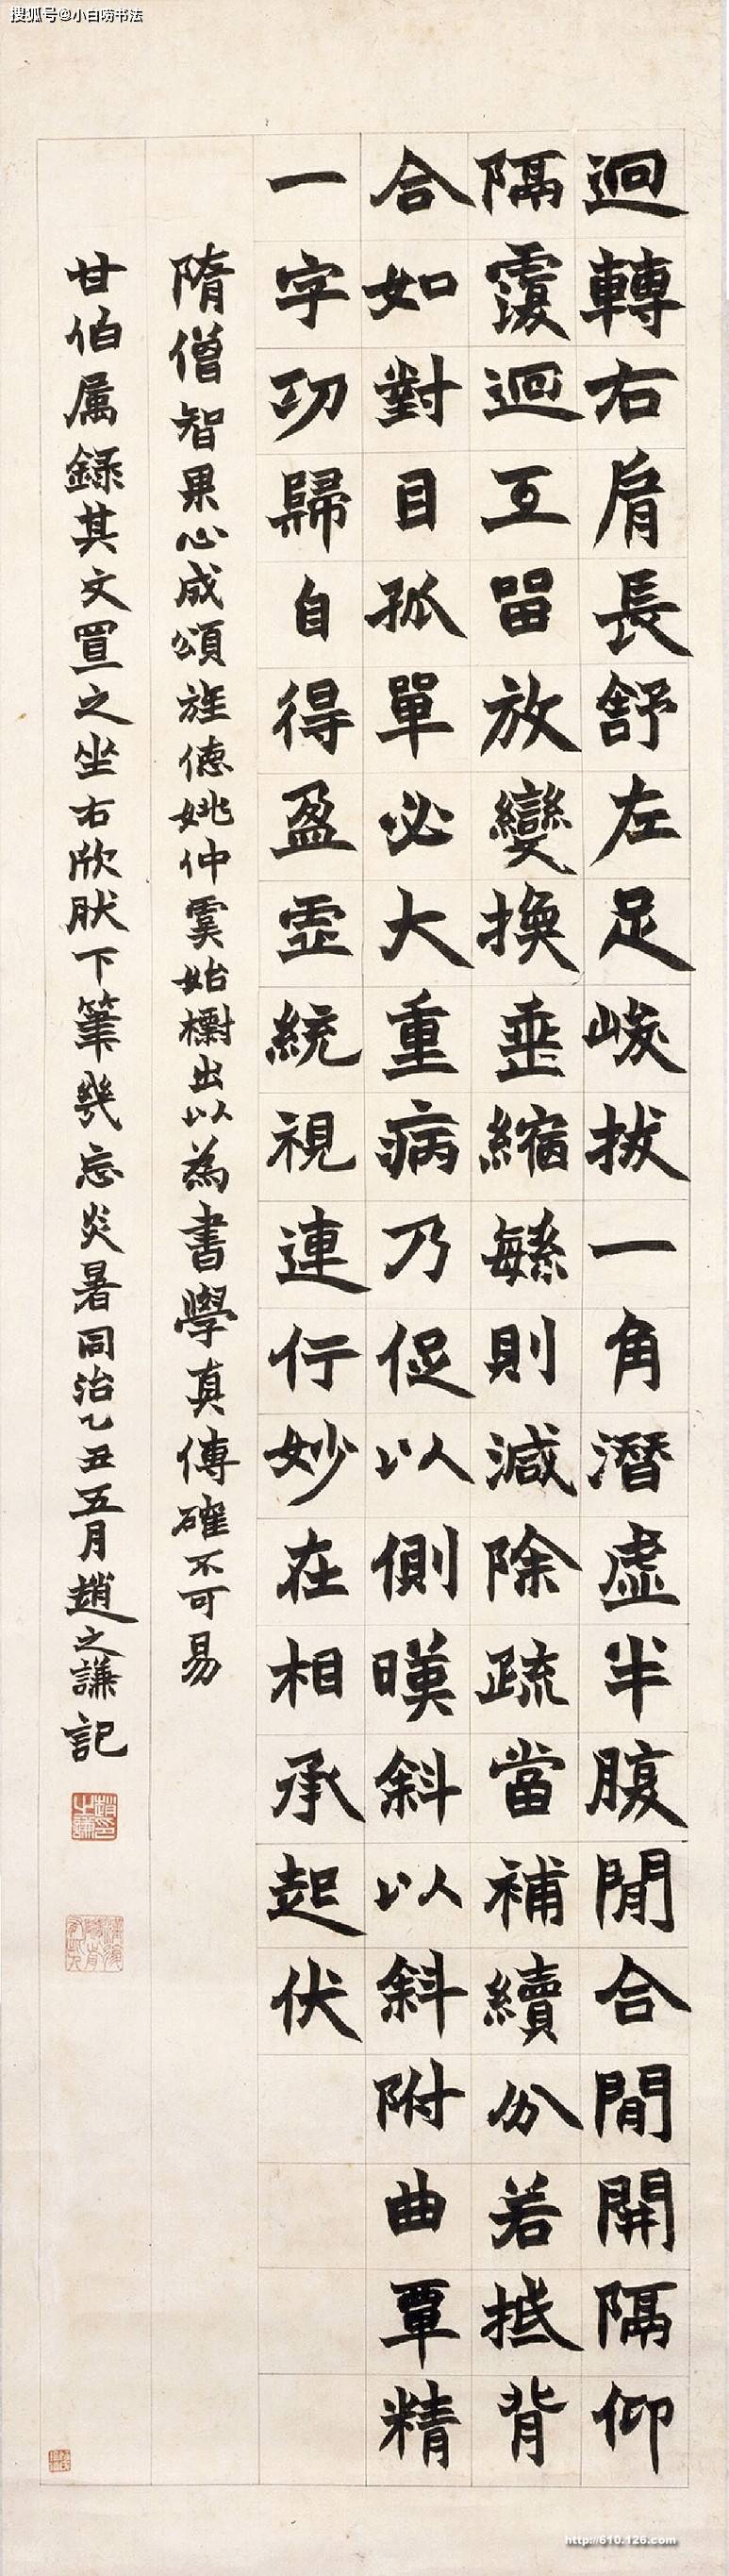 搜狐号@小白唠书法
迴轉右肩長舒左足峻拔一角潛虛半腹閒合閒開隔仰
隔覆迴互留放變換垂縮緐則減除疏當補續分若抵背
合如對目孤單必大重病乃促以側映斜以斜附曲覃精
一字功歸自得盈虛統視連行妙在相承起伏
隋僧智果心成頌旌德姚仲虞始櫥出以為書學真傳確不可易
甘伯属錄其文置之坐右欣肰下筆幾忘炎暑同治乙丑五月趙之謙記
http://610.126.com